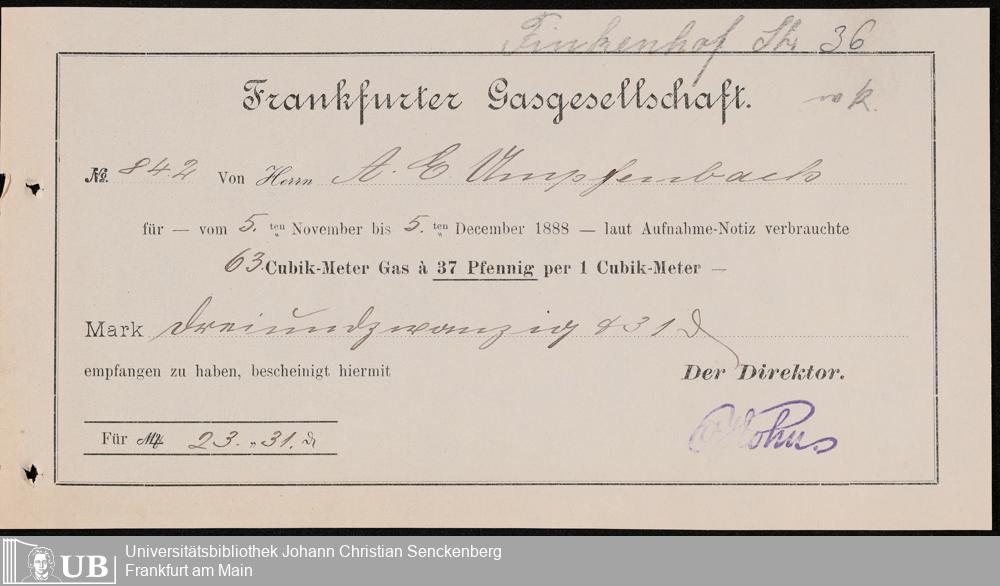 Finkenhof Str 36
Frankfurter Gasgesellschaft.
No. 842 Von Herrn A. E. Umpfenbach
für — vom 5. ten November bis 5. ten December 1888 — laut Aufnahme-Notiz verbrauchte
63. Cubik-Meter Gas à 37 Pfennig per 1 Cubik-Meter —
Mark dreiundzwanzig & 31 ₰
empfangen zu haben, bescheinigt hiermit Der Direktor.
Für Mk 23. „ 31. ₰
UB Universitätsbibliothek Johann Christian Senckenberg
Frankfurt am Main